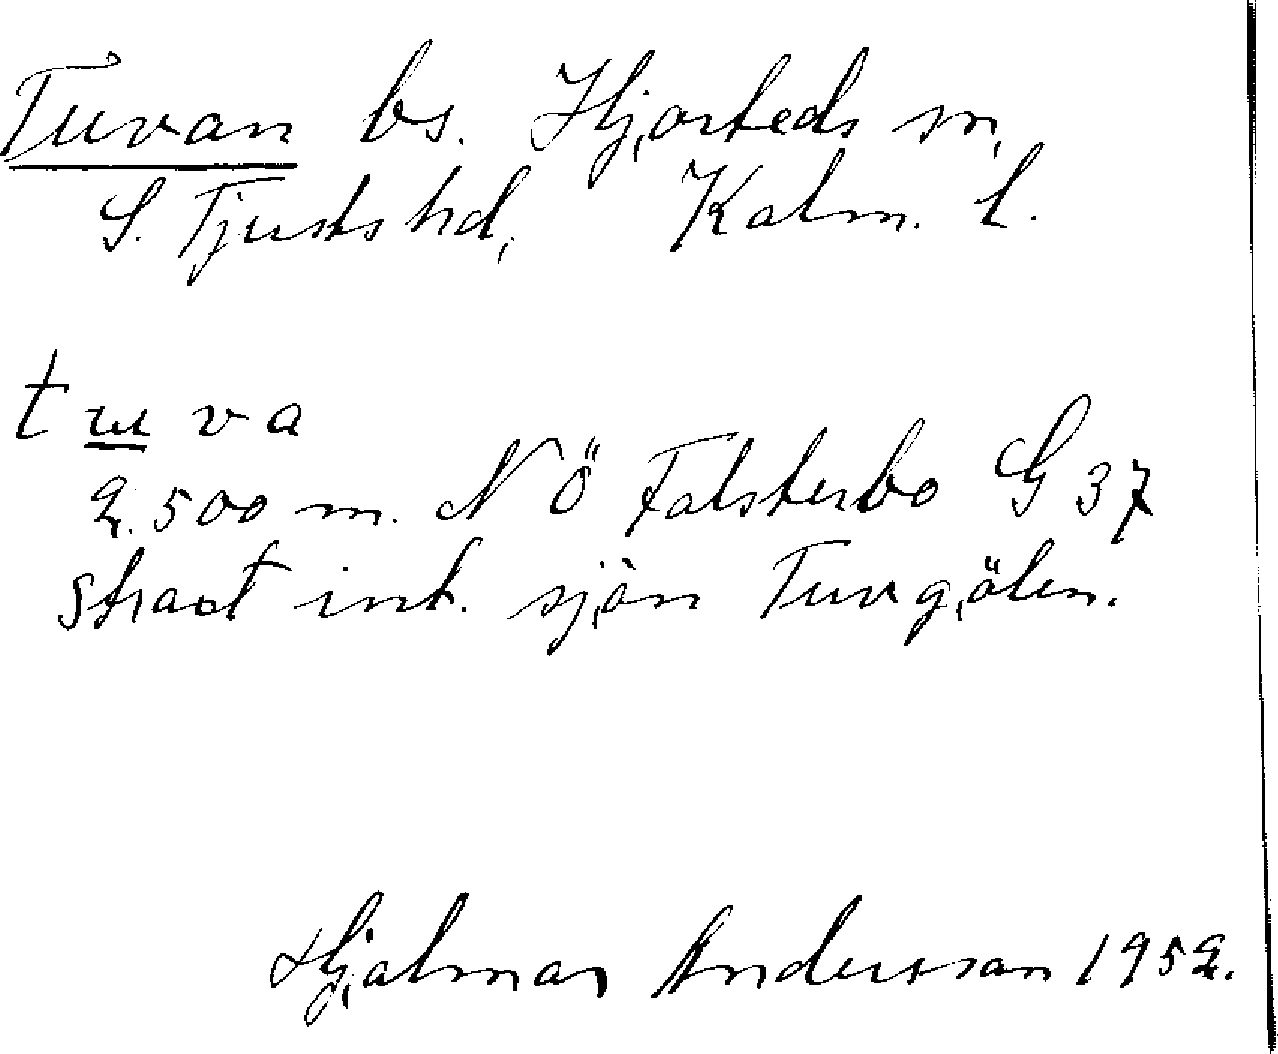 Tuvan bs. Hjorteds sn,
S. Tjusts hd, Kalm. l.
tuva
2.500 m. NÖ Falsterbo G 37
straxt invid. sjön Tuvgölen.
Hjalmar Andersson 1952.